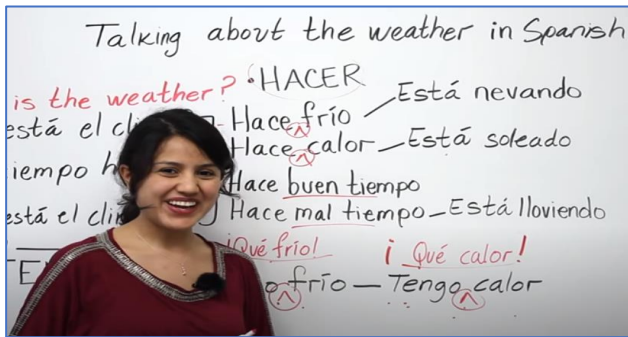 Talking about the weather in Spanish
is the weather? • HACER
está el cli Hace frío Está nevando
Hace calor - Está soleado
iempo h Hace buen tiempo
está el clim Hace mal tiempo - Está lloviendo
¡Qué frío! ¡Qué calor!
frío - Tengo calor